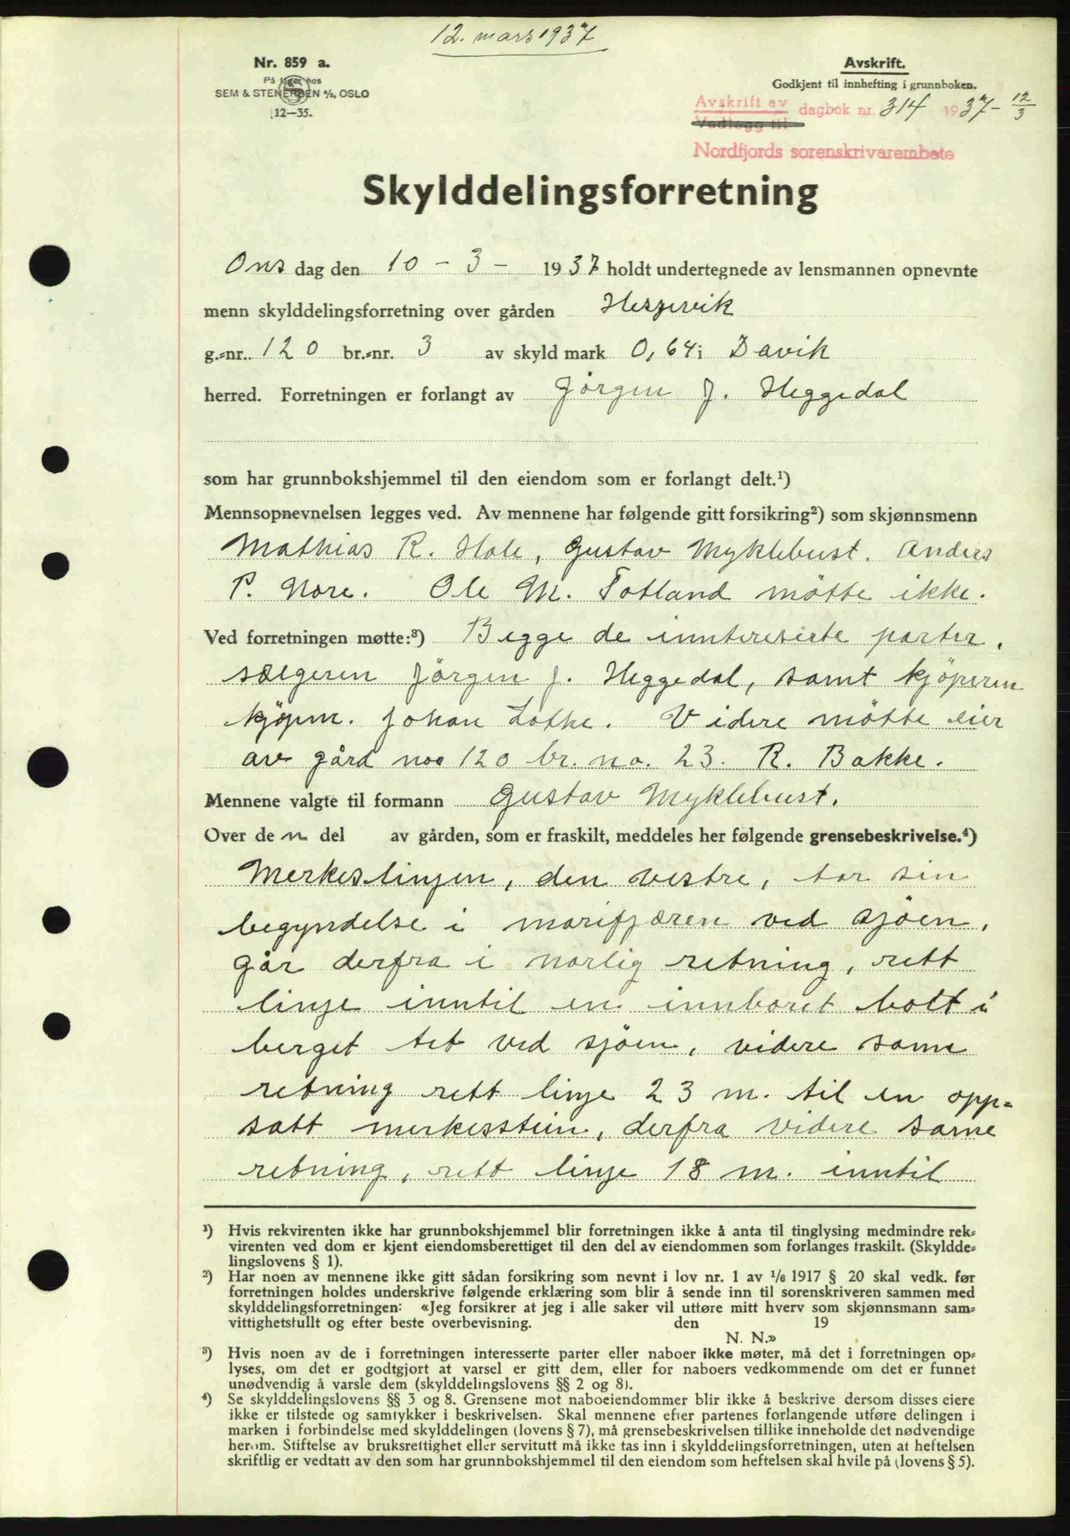 12. mars 1937
Nr. 859 a.
På lager hos
SEM & STENERSEN A/S, OSLO
12—35.
Avskrift.
Godkjent til innhefting i grunnboken.
Avskrift av
Vedlegg til
dagbok nr. 314 1937- 12/3
Nordfjords sorenskrivarembete
Skylddelingsforretning
Ons dag den 10 - 3 - 1937 holdt undertegnede av lensmannen opnevnte
menn skylddelingsforretning over gården Hesjevik
g.-nr. 120 br.-nr. 3 av skyld mark 0,64 i Davik
herred. Forretningen er forlangt av Jörgen J. Heggedal
som har grunnbokshjemmel til den eiendom som er forlangt delt.¹)
Mennsopnevnelsen legges ved. Av mennene har følgende gitt forsikring²) som skjønnsmenn
Mathias R. Hole, Gustav Myklebust. Anders
P. Nore. Ole M. Totland mötte ikke.
Ved forretningen møtte:³) Begge de inntereserte parter,
sælgeren Jörgen J. Heggedal, samt kjöperen
kjöpm. Johan Lothe. Videre mötte eier
av gård no 120 br. no. 23. R. Bakke.
Mennene valgte til formann Gustav Myklebust.
Over de n del av gården, som er fraskilt, meddeles her følgende grensebeskrivelse.⁴)
Merkeslinjen, den vestre, tar sin
begyndelse i marifjæren ved sjöen,
går derfra i norlig retning, rett
linje inntil en innboret bolt i
berget tet ved sjöen, videre same
retning rett linje 23 m. til en opp-
satt merkesstein, derfra videre same
retning, rett linje 18 m. inntil
¹) Hvis rekvirenten ikke har grunnbokshjemmel blir forretningen ikke å anta til tinglysing medmindre rek-
virenten ved dom er kjent eiendomsberettiget til den del av eiendommen som forlanges fraskilt. (Skyldde-
lingslovens § 1).
²) Har noen av mennene ikke gitt sådan forsikring som nevnt i lov nr. 1 av 1/6 1917 § 20 skal vedk. før
forretningen holdes underskrive følgende erklæring som blir å sende inn til sorenskriveren sammen med
skylddelingsforretningen: «Jeg forsikrer at jeg i alle saker vil utføre mitt hverv som skjønnsmann sam-
vittighetsfullt og efter beste overbevisning. den 19
N. N.»
³) Hvis noen av de i forretningen interesserte parter eller naboer ikke møter, må det i forretningen op-
lyses, om det er godtgjort at varsel er gitt dem, eller for naboers vedkommende om det er funnet
unødvendig å varsle dem (skylddelingslovens §§ 2 og 8).
⁴) Se skylddelingslovens §§ 3 og 8. Grensene mot naboeiendommer blir ikke å beskrive dersom disses eiere
ikke er tilstede og samtykker i beskrivelsen. Skal mennene efter partenes forlangende utføre delingen i
marken i forbindelse med skylddelingen (lovens § 7), må grensebeskrivelsen tillike inneholde det nødvendige
herom. Stiftelse av bruksrettighet eller servitutt må ikke tas inn i skylddelingsforretningen, uten at heftelsen
skriftlig er vedtatt av den som har grunnbokshjemmel til den eiendom som heftelsen skal hvile på (lovens § 5).